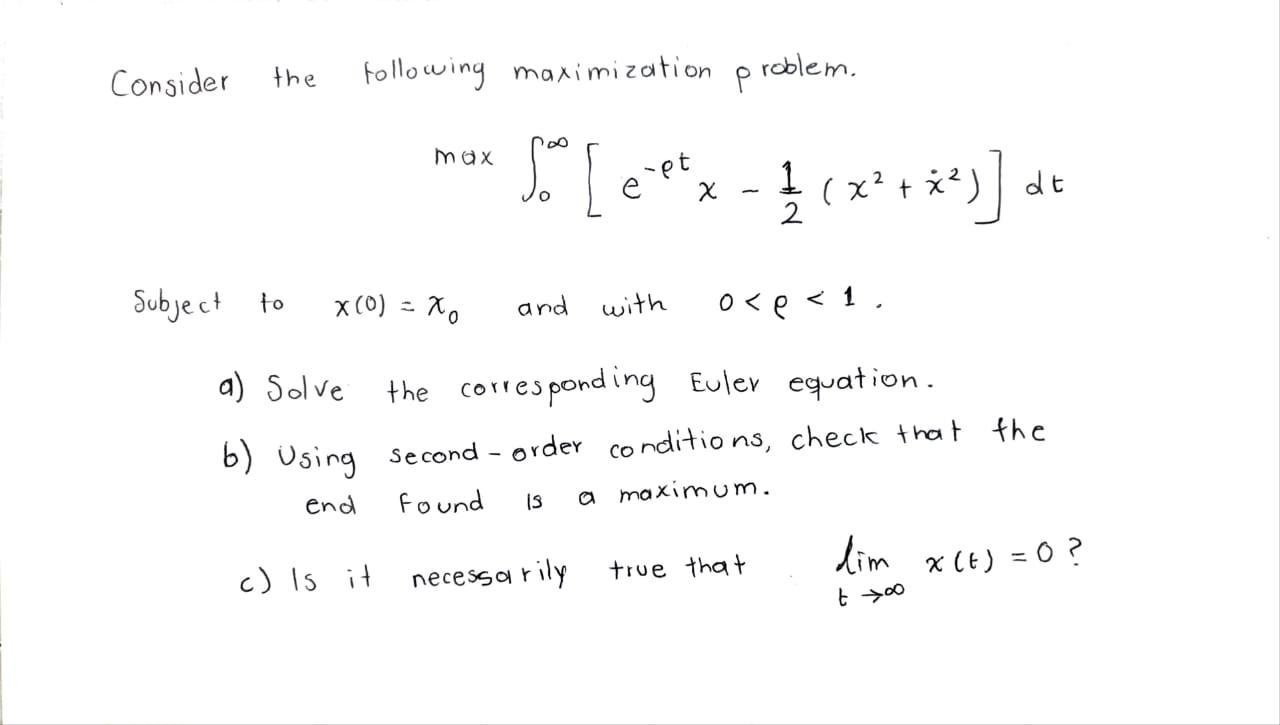 Consider the following maximization problem.
max ∫₀^∞ [ e^{-ρt} x - 1/2 (x² + ẋ²) ] dt
Subject to x(0) = x₀ and with 0 < ρ < 1 .
a) Solve the corresponding Euler equation.
b) Using second-order conditions, check that the
end found is a maximum.
c) Is it necessarily true that lim x(t) = 0 ?
t → ∞